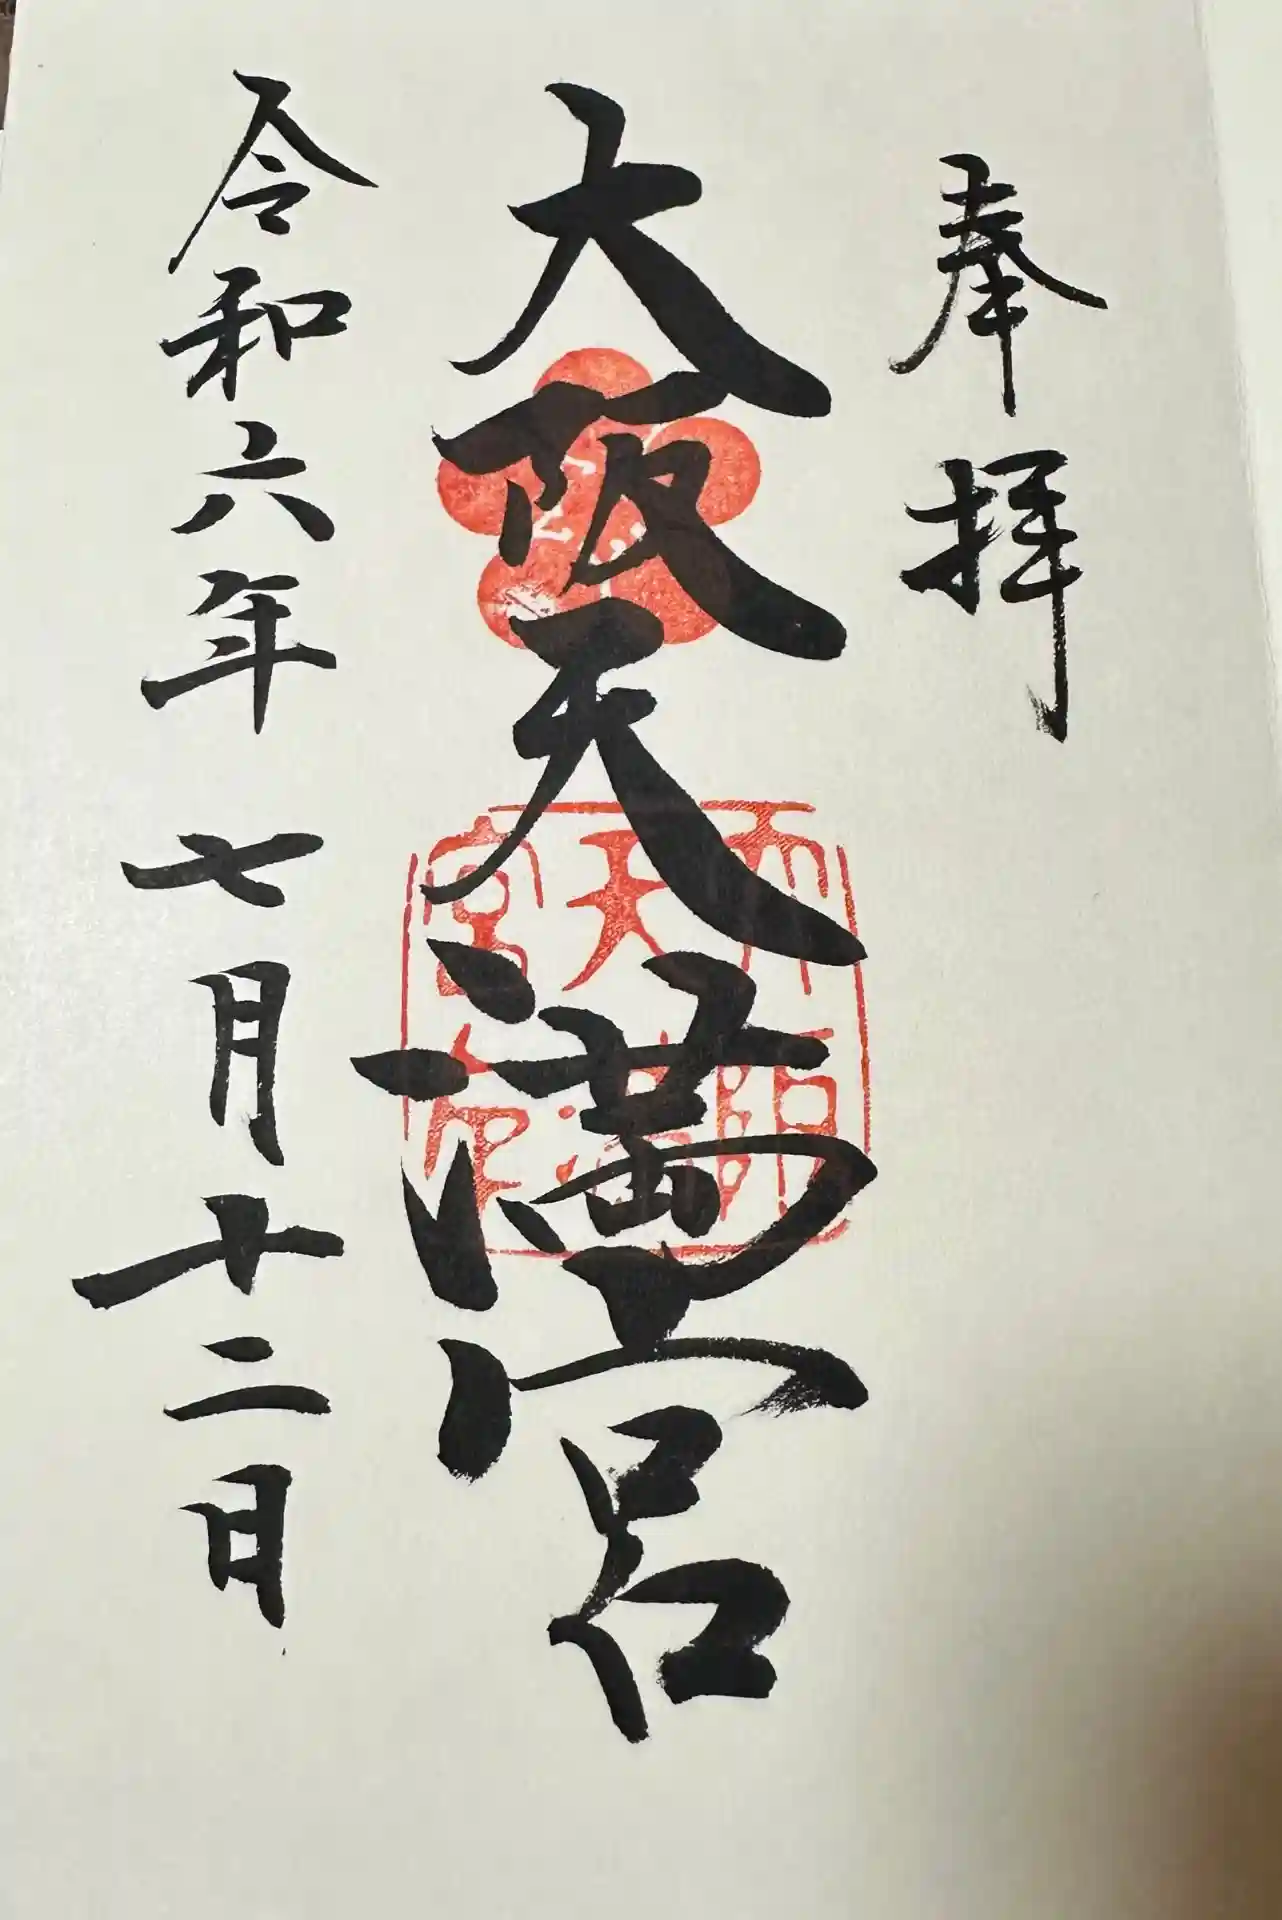 奉拝
大阪天満宮
令和六年 七月十二日